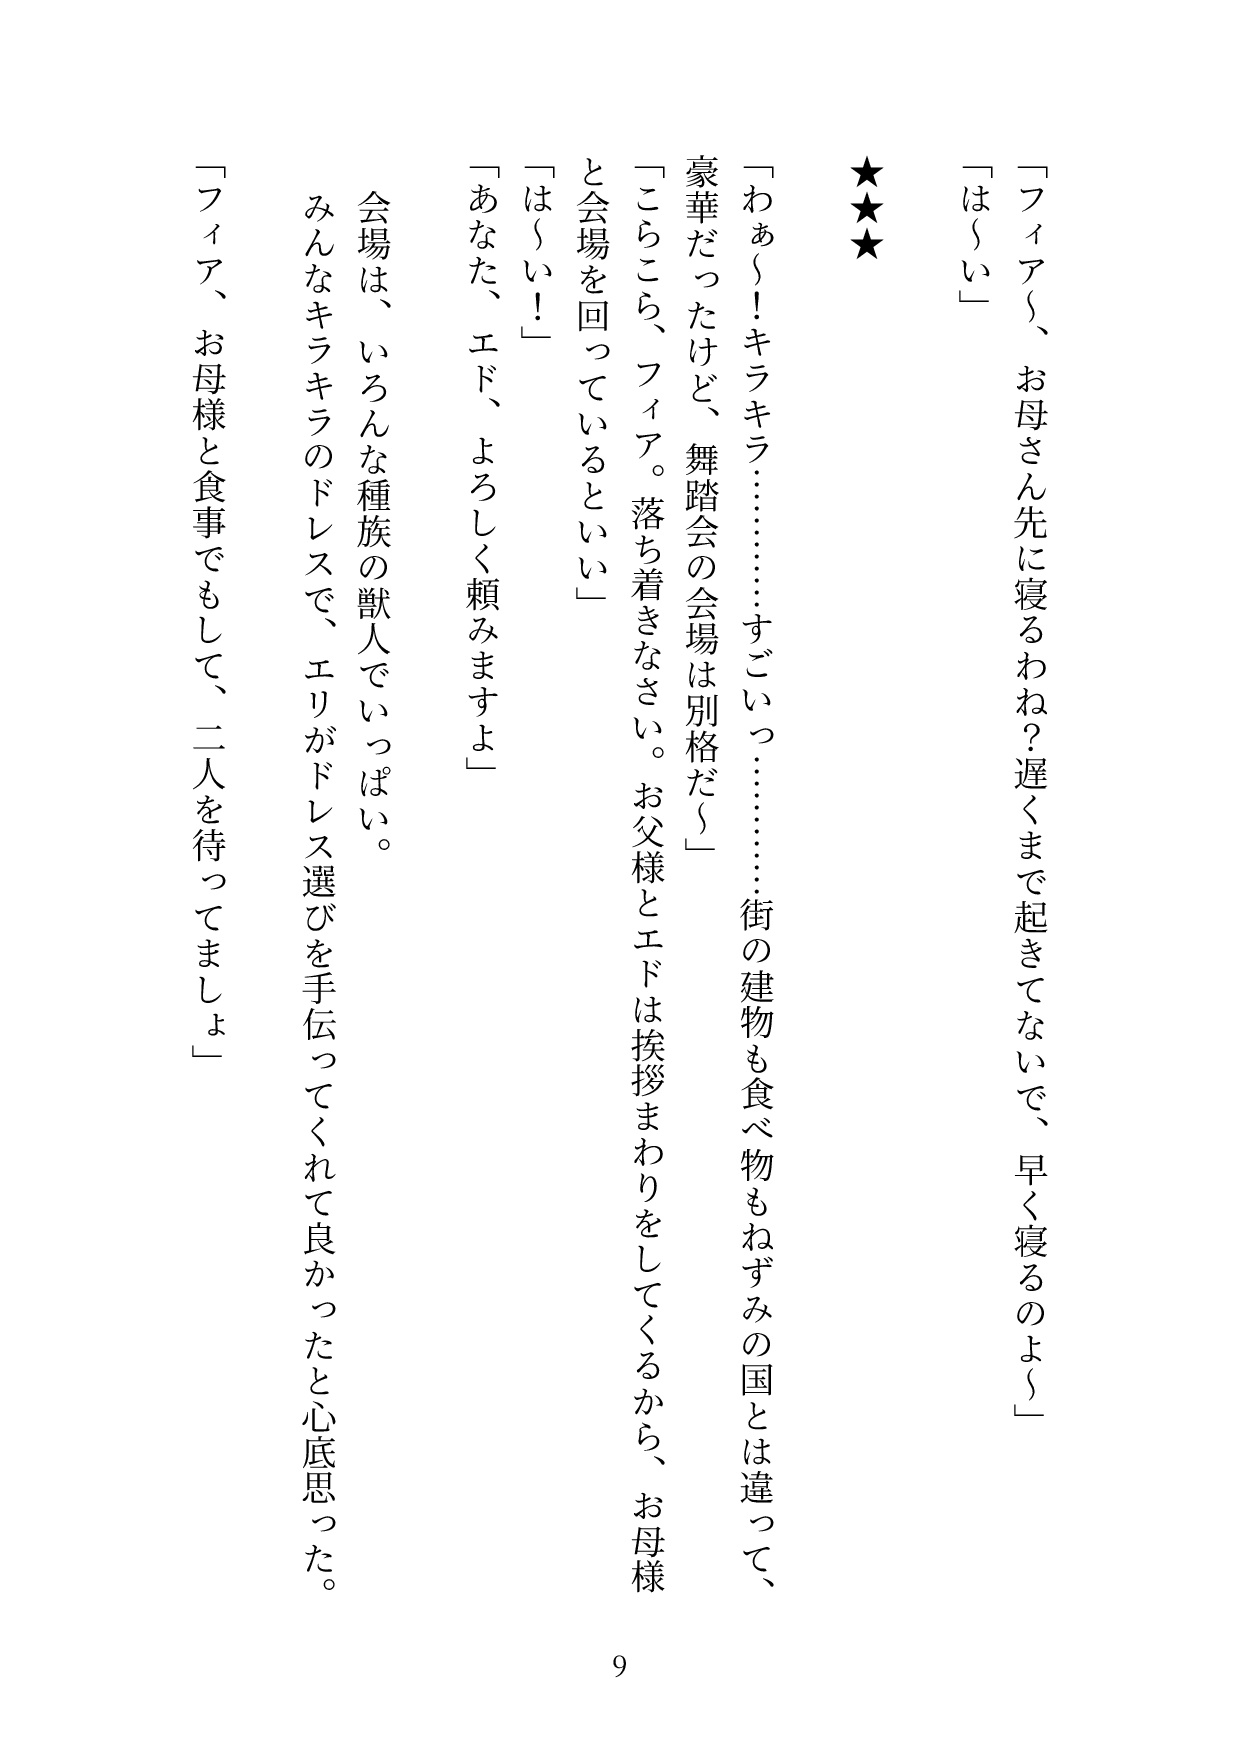 「フィア～、お母さん先に寝るわね？遅くまで起きてないで、早く寝るのよ～」
「は～い」
★★★
「わぁ～！キラキラ…………すごいっ…………街の建物も食べ物もねずみの国とは違って、
豪華だったけど、舞踏会の会場は別格だ～」
「こらこら、フィア。落ち着きなさい。お父様とエドは挨拶まわりをしてくるから、お母様
と会場を回っているといい」
「は～い！」
「あなた、エド、よろしく頼みますよ」
会場は、いろんな種族の獣人でいっぱい。
みんなキラキラのドレスで、エリがドレス選びを手伝ってくれて良かったと心底思った。
「フィア、お母様と食事でもして、二人を待ってましょ」
9